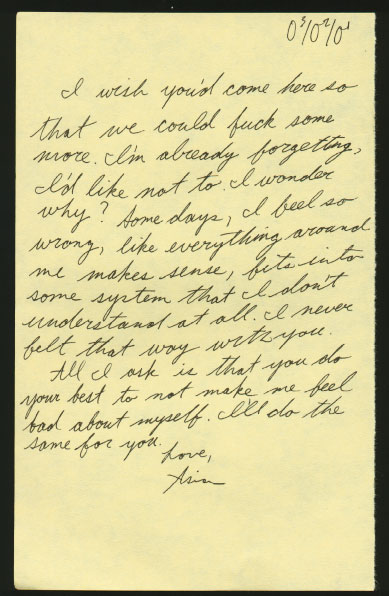 03/02/01
I wish you'd come here so
that we could fuck some
more. I'm already forgetting,
I'd like not to. I wonder
why? Some days, I feel so
wrong, like everything around
me makes sense, fits into
some system that I don't
understand at all. I never
felt that way with you.
All I ask is that you do
your best to not make me feel
bad about myself. I'll do the
same for you.
Love,